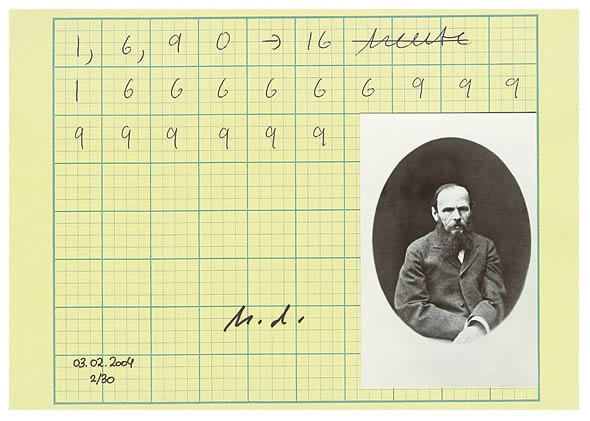 1, 6, 9 0 → 16 heute
1 6 6 6 6 6 6 9 9 9
9 9 9 9 9 9
h.d.
03.02.2004
2/30